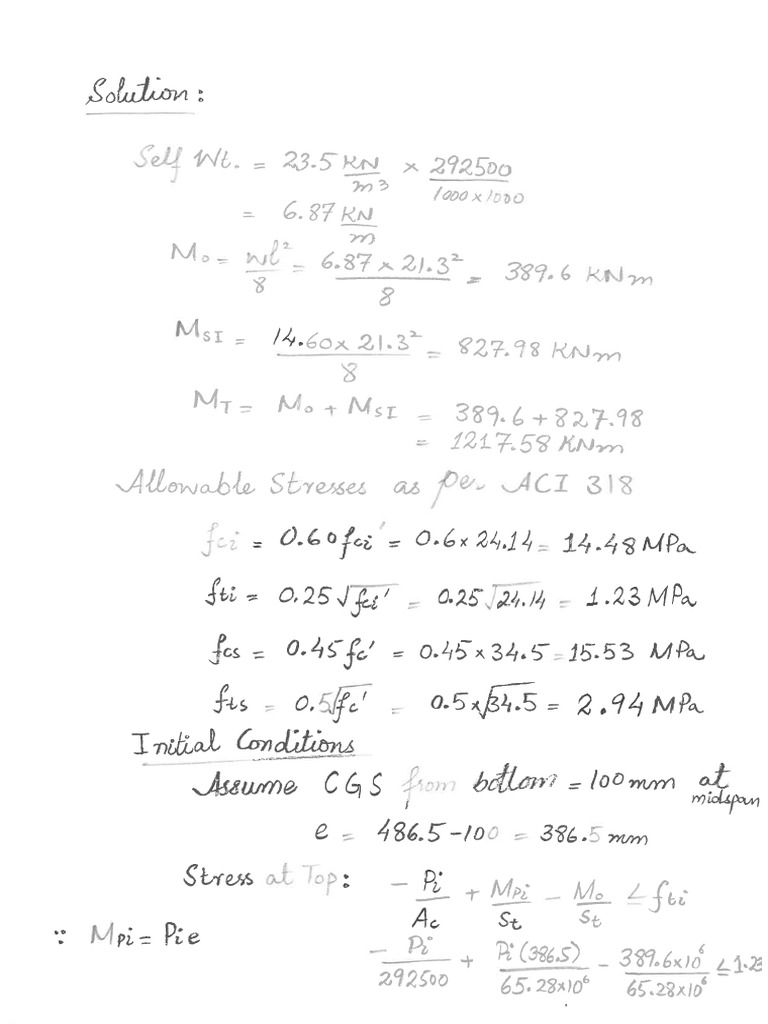 Solution:
Self Wt. = 23.5 KN/m3 × 292500/1000×1000
= 6.87 KN/m
Mo = wl²/8 = 6.87 × 21.3²/8 = 389.6 KNm
MSI = 14.60 × 21.3²/8 = 827.98 KNm
MT = Mo + MSI = 389.6 + 827.98
= 1217.58 KNm
Allowable Stresses as per ACI 318
fci = 0.60fci' = 0.6×24.14 = 14.48 MPa
fti = 0.25√fci' = 0.25√24.14 = 1.23 MPa
fcs = 0.45fc' = 0.45×34.5 = 15.53 MPa
fts = 0.5√fc' = 0.5×√34.5 = 2.94 MPa
Initial Conditions
Assume CGS from bottom = 100mm at midspan
e = 486.5-100 = 386.5 mm
Stress at Top: - Pi/Ac + Mpi/St - Mo/St ≤ fti
∵ Mpi = Pi e
- Pi/292500 + Pi(386.5)/65.28×10⁶ - 389.6×10⁶/65.28×10⁶ ≤ 1.23